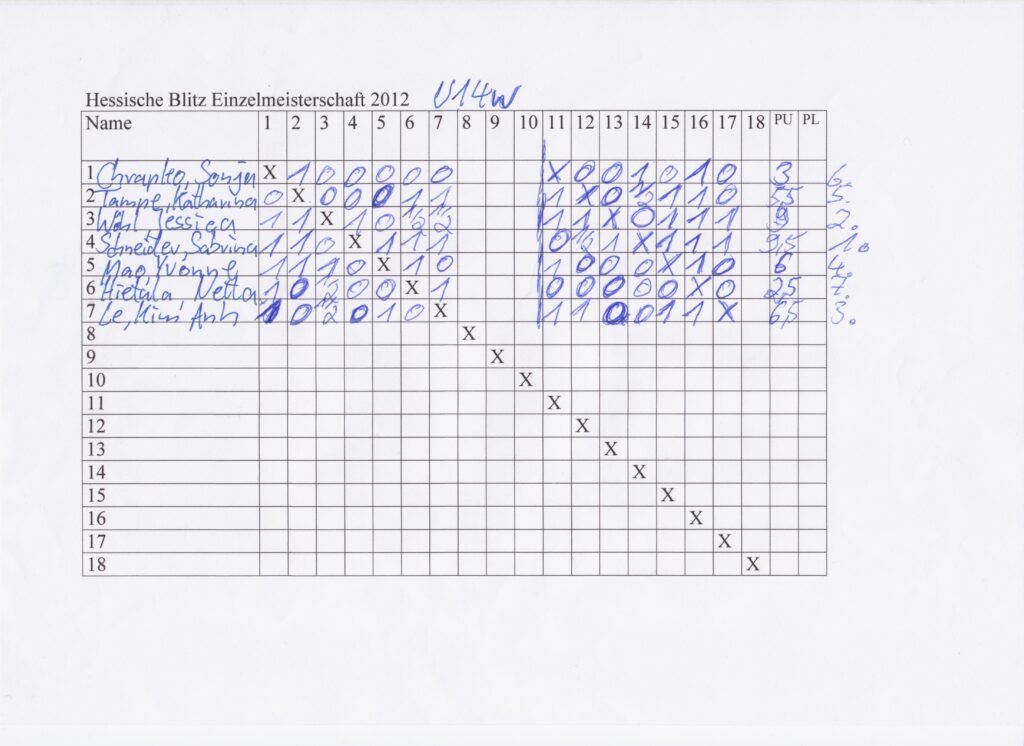 Hessische Blitz Einzelmeisterschaft 2012 U14w
Name 1 2 3 4 5 6 7 8 9 10 11 12 13 14 15 16 17 18 PU PL
1 Chrapko, Sonja X 1 0 0 0 0 0 X 0 0 1 0 1 0 3 6.
2 Tampe, Katharina 0 X 0 0 0 1 1 1 X 0 ½ 1 1 0 5,5 5.
3 Wohl, Jessica 1 1 X 1 0 ½ ½ 1 1 X 0 1 1 1 9 2.
4 Schneider, Sabrina 1 1 0 X 1 1 1 0 ½ 1 X 1 1 1 9,5 1.
5 Mao, Yvonne 1 1 1 0 X 1 0 1 0 0 0 X 1 0 6 4.
6 Hietula, Netta 1 0 ½ 0 0 X 1 0 0 0 0 0 X 0 2,5 7.
7 Le, Kim Anh 1 0 ½ 0 1 0 X 1 1 0 0 1 1 X 6,5 3.
8 X
9 X
10 X
11 X
12 X
13 X
14 X
15 X
16 X
17 X
18 X